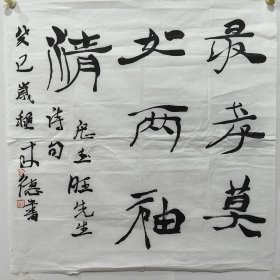 最孝莫
如两袖
清
唐玉旺先生
诗句
癸巳岁
德书